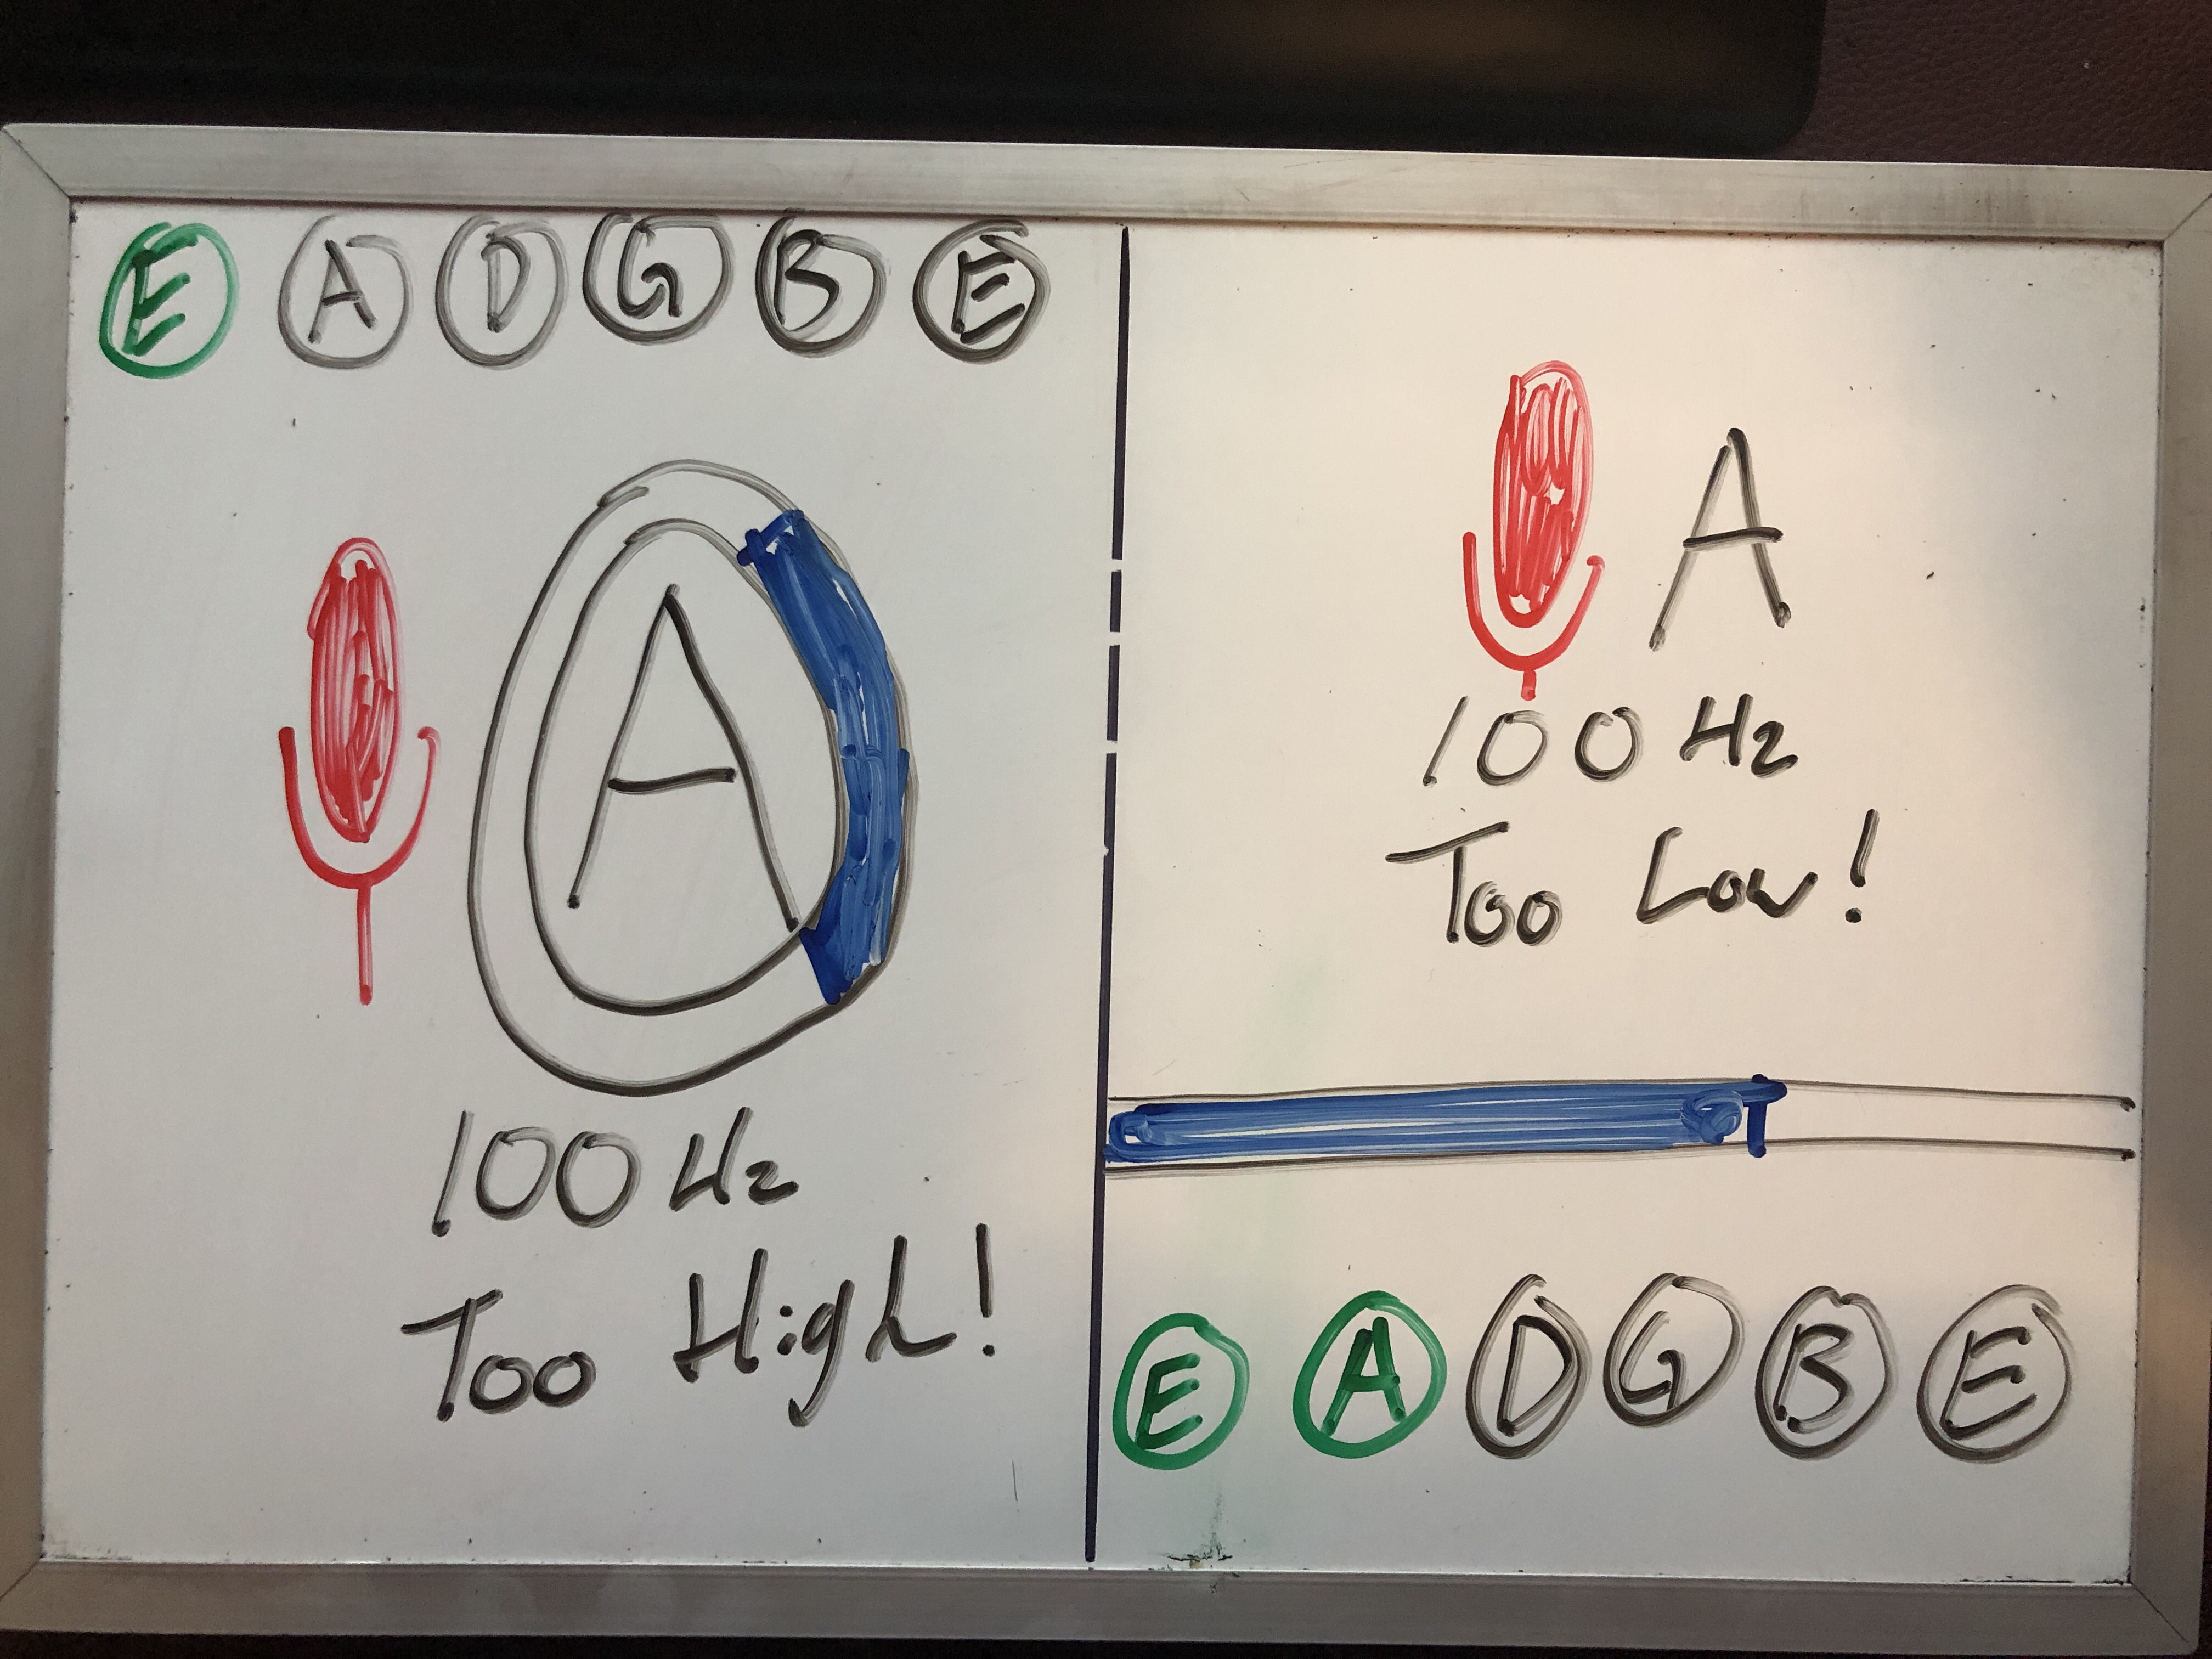 E A D G B E
A
100 Hz
Too High!
A
100 Hz
Too Low!
E A D G B E